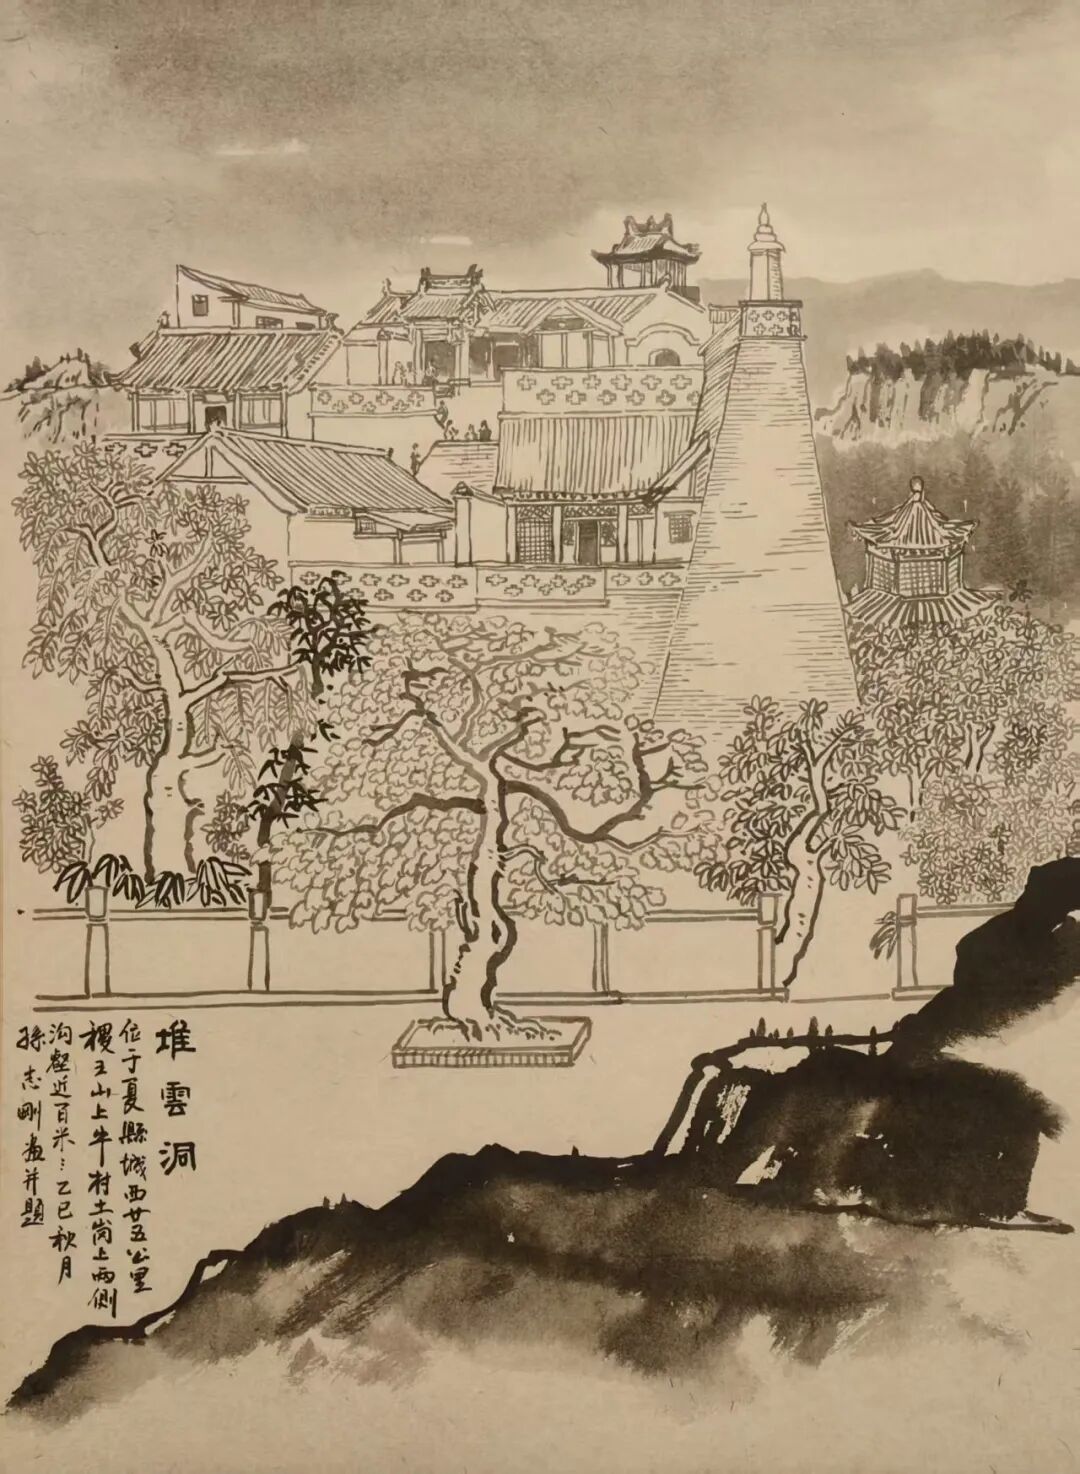 堆雲洞
位于夏縣城西廿五公里
稷王山上牛村土崗上两側
沟壑近百米：乙巳秋月
孫志剛畫并題